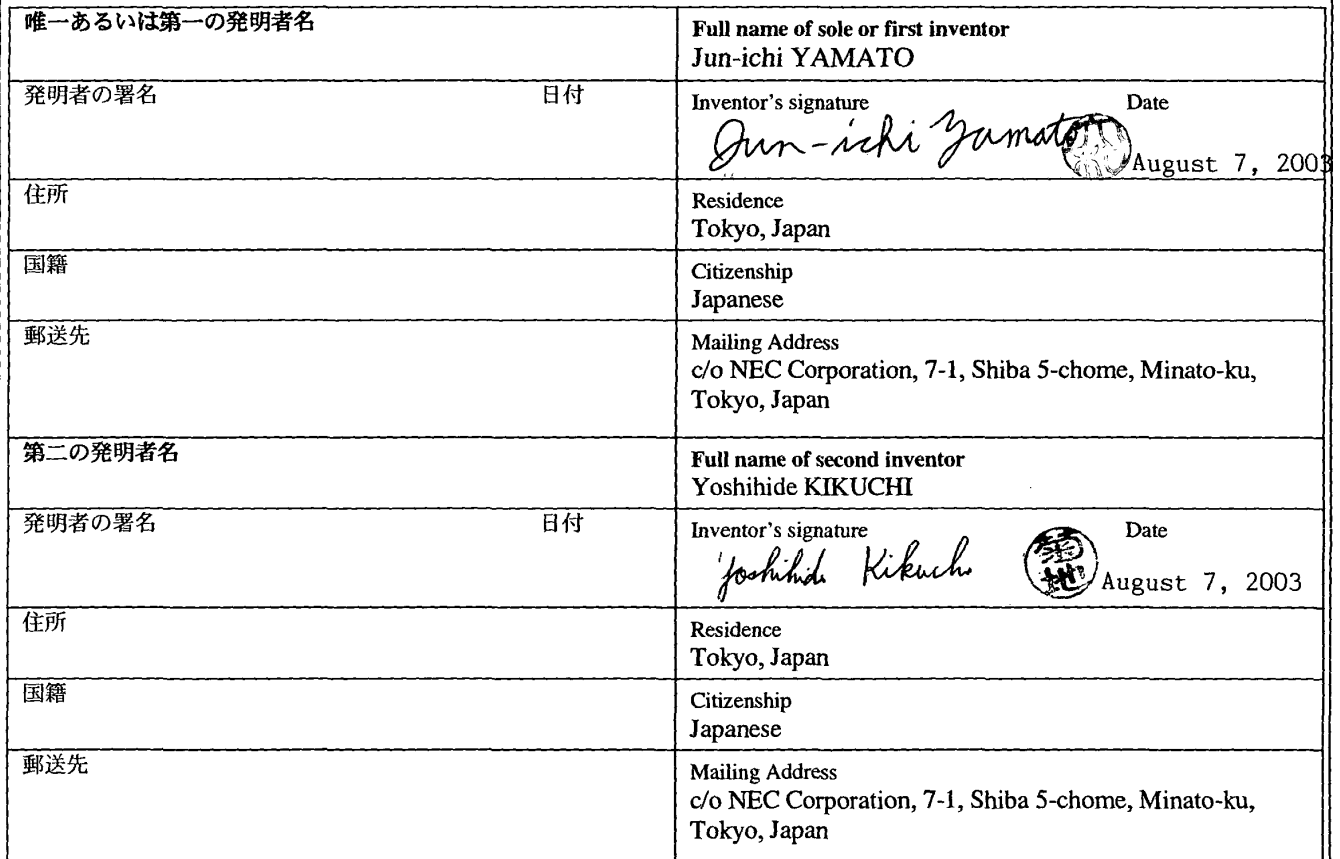 唯一あるいは第一の発明者名
Full name of sole or first inventor
Jun-ichi YAMATO
発明者の署名 日付
Inventor's signature Date
Jun-ichi Yamato
August 7, 2003
住所
Residence
Tokyo, Japan
国籍
Citizenship
Japanese
郵送先
Mailing Address
c/o NEC Corporation, 7-1, Shiba 5-chome, Minato-ku,
Tokyo, Japan
第二の発明者名
Full name of second inventor
Yoshihide KIKUCHI
発明者の署名 日付
Inventor's signature Date
Yoshihide Kikuchi 菊地
August 7, 2003
住所
Residence
Tokyo, Japan
国籍
Citizenship
Japanese
郵送先
Mailing Address
c/o NEC Corporation, 7-1, Shiba 5-chome, Minato-ku,
Tokyo, Japan